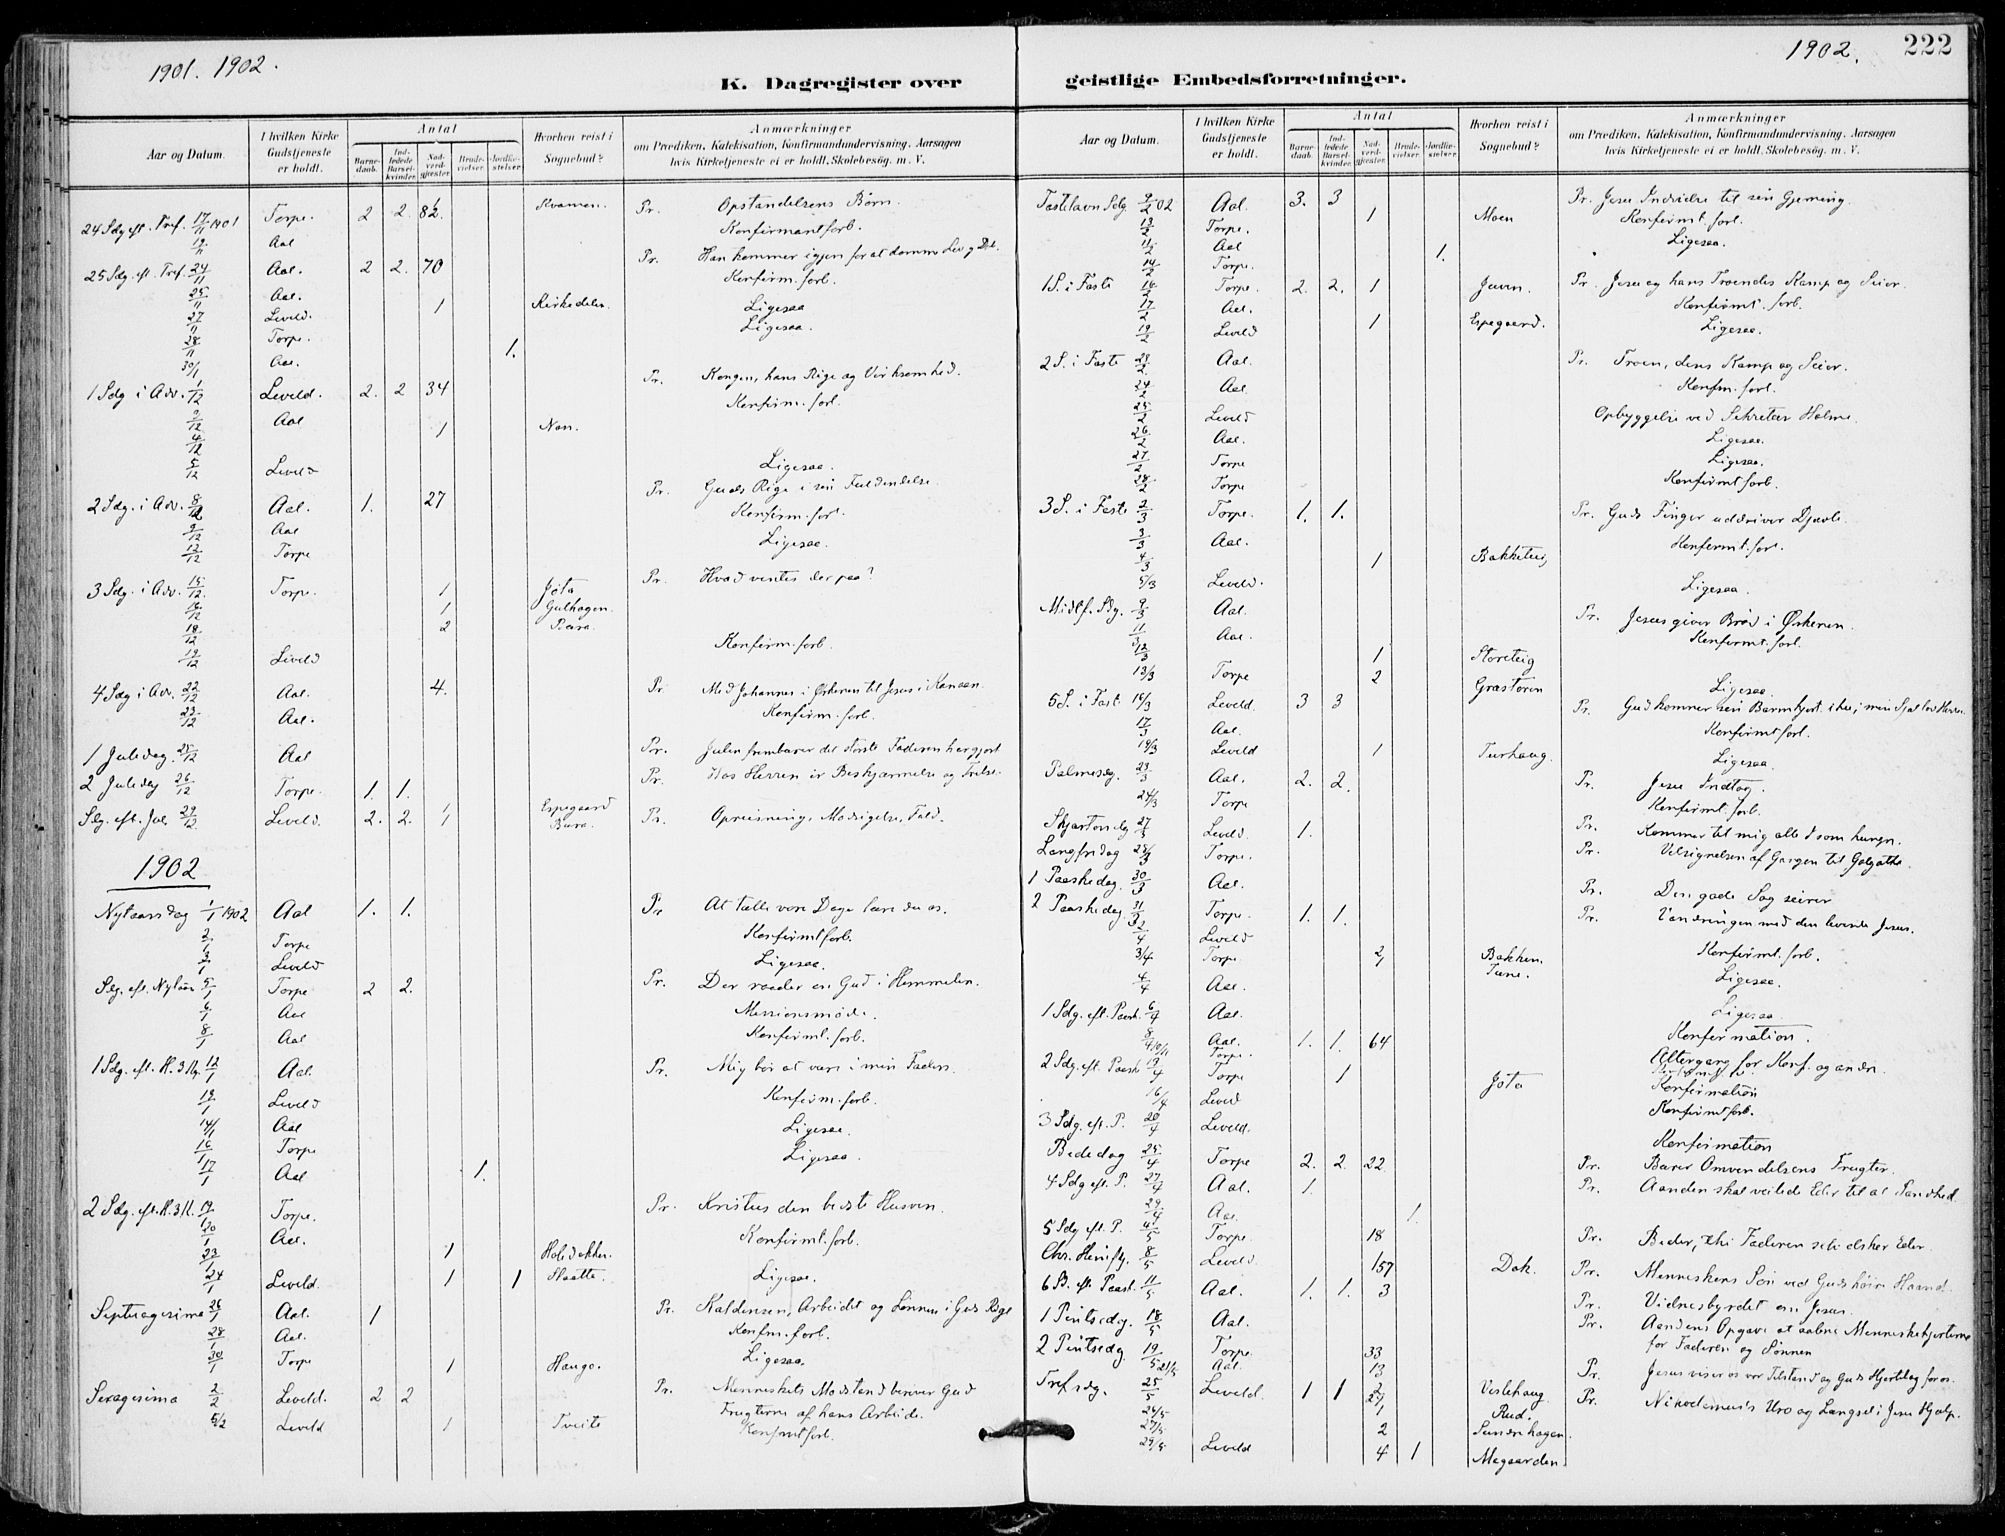 1901. 1902.
K. Dagregister over
Aar og Datum.
I hvilken Kirke Gudstjeneste er holdt.
Antal
Barnedaab.
Indledede Barselkvinder.
Nadverdgjæster.
Brudevielser.
Jordfæstelser.
Hvorhen reist i Sognebud?
Anmærkninger
om Prædiken, Katekisation, Konfirmandundervisning. Aarsagen
hvis Kirketjeneste ei er holdt. Skolebesøg. m. V.
24 Sdg eft. Tref. 17/11 1901 Torpe. 2 2. 82. Kvamen. Pr. Opstandelsens Børn.
19/11 Aal Konfirmantforb.
25 Sdg. eft. Tref. 24/11 Aal. 2 2. 70 Pr. Han kommer igjen for at dømme Lev. og Død.
25/11 Aal. Konfirm. forb.
27/11 Leveld. 1 Kirkedelen. Ligesaa
28/11 Torpe. Ligesaa.
30/11 Aal. 1.
1 Sdg i Adv. 1/12 Leveld. 2. 2 34 Pr. Kongen, hans Rige og Virksomhed.
2/12 Aal Konfirm. forb.
4/12 1 Nos.
5/12 Leveld Ligesaa.
2 Sdg. i Adv. 8/12 Aal. 1. 27 Pr. Guds Rige i sin Fuldendelse.
9/12 Aal Konfirm. forb.
12/12 Torpe Ligesaa.
3 Sdg. i Adv. 15/12. Torpe. 1 Jota Pr. Hvad ventes der paa?
16/12 1 Gulhagen.
18/12 2 Bæra.
19/12 Leveld Konfirm. forb.
4 Sdg i Adv. 22/12 Aal. 4. Pr. Med Johannes i Ørkenen til Jesus i Kanaan.
23/12 Aal. Konfirm. forb.
1 Juledag. 25/12 Aal Pr. Julen frembærer det største Faderen har gjort
2 Juledag 26/12 Torpe. 1. 1. Pr. Hos Herren er Beskjærmelse og Frelse.
Sdg. eft. Jul. 29/12 Leveld. 2. 2. 1 Espegaard Bæra. Pr. Opreisning, Modsigelse, Fald.
1902
Nytaarsdag 1/1 1902 Aal 1. 1. Pr At tælle vore Dage lære du os.
2/1 Torpe Konfirmtforb.
3/1 Leveld Ligesaa.
Sdg. eft. Nytaar 5/1 Torpe 2 2. Pr. Der raader en Gud i Himmelen.
6/1 Aal Missionsmøde.
8/1 Aal Konfirmt. forb.
1 Sdg. eft. H. 3 K. 12/1 Aal. Pr. Mig bør at være i min Faders.
13/1 Leveld Konfirm. forb.
14/1 Aal Ligesaa.
16/1 Torpe Ligesaa.
17/1 Aal 1.
2 Sdg. eft. H. 3 K. 19/1 Torpe. Pr. Kristus den bedste Husven.
20/1 Aal. Konfirmt. forb.
23/1 1 Holdebakken.
24/1 Leveld. 1 1 Slaatte. Ligesaa.
Septuagesima 26/1 Aal. 1 Pr. Kaldensen, Arbeidet og Lønnen i Guds Rige
28/1 Aal. Konfm. forb.
30/1 Torpe 1 Hauge. Ligesaa.
Sexagesima 2/2 Leveld. 2 2 Pr. Menneskets Modstand berøver Gud
Frugterne af hans Arbeide.
5/2 Leveld 1 Tveito Konfirmtforb.
1902.
222
geistlige Embedsforretninger.
Aar og Datum.
I hvilken Kirke Gudstjeneste er holdt.
Antal
Barnedaab.
Indledede Barselkvinder.
Nadverdgjæster.
Brudevielser.
Jordfæstelser.
Hvorhen reist i Sognebud?
Anmærkninger
om Prædiken, Katekisation, Konfirmandundervisning. Aarsagen
hvis Kirketjeneste ei er holdt. Skolebesøg. m. V.
Fastelavn Sdg. 9/2 02 Aal. 3. 3 Pr. Jesu Indvielse til sin Gjerning.
Torpe. 1 Moen Konfirmt. forb.
Aal 1. Ligesaa.
14/2 Torpe.
1 S. i Faste 16/2 Torpe. 2. 2. 1 Juven. Pr. Jesu og hans Troendes Kamp og Seier.
17/2 Aal. Konfirmt. forb.
19/2 Leveld 1 Espegaard. Ligesaa.
2 S. i Faste 23/2 Aal. Pr. Troen, dens Kamp og Seier.
24/2 Aal Konfm. forb.
25/2 Leveld Opbyggelse ved Sekretær Holme
26/2 Aal. Ligesaa.
27/2 Torpe Ligesaa.
28/2 Torpe Konfirmtforb.
3 S. i Faste 2/3 Torpe. 1. 1. Pr. Guds Finger uddriver Djævle.
3/3 Aal. Konfirmt. forb.
4/3 1 Bakketeig
5/3 Leveld. Ligesaa.
Midtf. Sdg. 9/3 Aal. Pr. Jesus giver Brød i Ørkenen.
11/3 Aal. Konfirmt. forb.
12/3 1 Storeteig
13/3 Torpe 2 Grøstøren Ligesaa.
5 S. i Fast. 16/3 Leveld. 3 3 Pr. Gud kommer sin Barmhjert. ihu; min Sjæl lov Herren.
17/3 Aal. Konfirmtforb.
19/3 Leveld 1 Turhaug. Ligesaa.
Palmesdg. 23/3 Aal. 2. 2. Pr. Jesu Indtog.
24/3 Torpe Konfirmt. forb.
Skjærtorsdg 27/3 Leveld. 1. Pr. Kommer til mig alle I som hungrer.
Langfredag 28/3 Torpe. Pr. Velsignelsen af Gangen til Golgatha.
1 Paaskedag. 30/3 Aal. Pr. Den gode Sag seirer
2 Paaskedag. 31/3 Torpe. 1. 1. Pr. Vandringen med den levende Jesus.
2/4 Leveld Konfirmt. forb.
3/4 Torpe. 2 Bakken. Tune. Ligesaa.
4/4 Aal. Ligesaa
1 Sdg. eft. Paask. 6/4 Aal. Konfirmation.
8/4 Aal. 1. 1. 64 Altergang for Konf. og andre.
Torpe.
2 Sdg. eft. Paask. 13/4 Torpe 1 Jota Konfirmation
16/4 Leveld Konfirmtforb.
3 Sdg. eft. P. 20/4 Leveld. Konfirmation
Bededag 25/4 Torpe 2. 2. 22 Pr. Bærer Omvendelsens Frugter.
4 Sdg eft. P. 27/4 Aal. 1. Pr. Aanden skal veilede Eder til al Sandhed.
29/4 Aal. 1.
5 Sdg eft. P. 4/5 Torpe. 18 Pr. Beder, thi Faderen selv elsker Eder.
Chr. Himlfg. 8/5 Leveld 157 Dok. Pr. Menneskens Søn ved Guds høire Haand.
6 S. eft Paask. 11/5 Aal. 1. 1. 3 Pr. Vidnesbyrdet om Jesus.
1 Pintsedg. 18/5 Aal. Pr. Aandens Opgave at aabne Menneskehjerterne
for Faderen og Sønnen
2 Pintsedg. 19/5 Torpe. 33 Pr. Jesus viser os vor Tilstand og Guds Hjertelag for os.
21/5 Aal. 13
Trefsdg. 25/5 Leveld. 1 1 2 Veslehaug Pr. Nikodemus's Uro og Længsel i Jesu Hjælp.
26/5 1 Rud.
27/5 2 Sundrehagen.
29/5 Leveld 4 1 Megaarden.